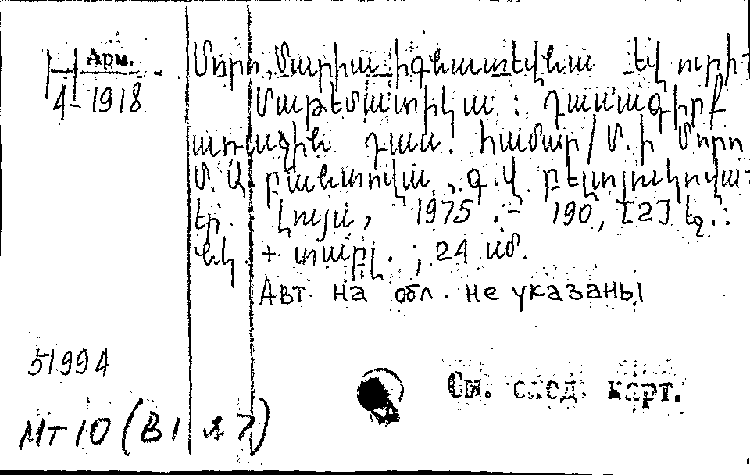 Арм.
4-1918
Մորո, Մարիա Իգնատևնա և ուրիշ
Մաթեմատիկա : Դասագիրք
առաջին դաս. համար/Մ.Ի Մորո
Մ.Ա. Բանտովա, Գ.Վ.
Եր. Լույս, 1975.- 190, [2] էջ.:
նկ. + տաբլ. ; 24 սմ.
Авт. на обл. не указаны
51994
См. след. карт.
Мт 10 (В1 27)